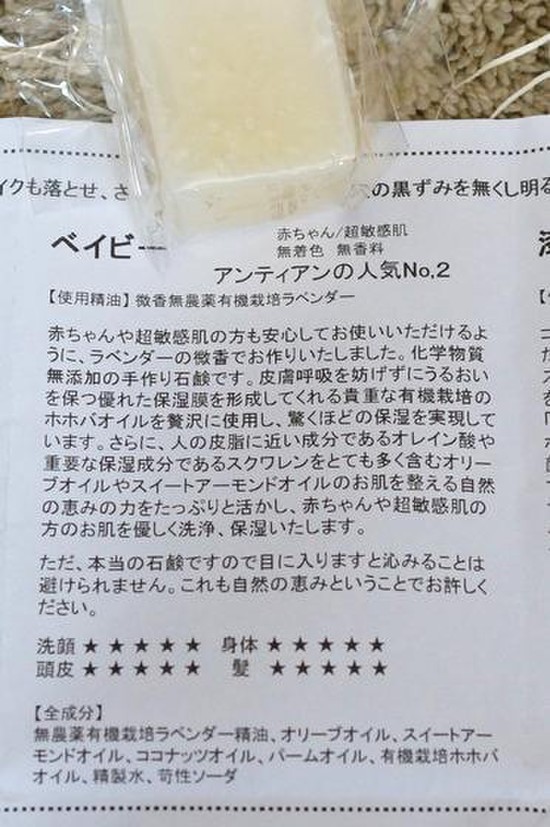 イクも落とせ、さ
の黒ずみを無くし明る
ベイビー
赤ちゃん/超敏感肌
無着色 無香料
アンティアンの人気No,2
【使用精油】微香無農薬有機栽培ラベンダー
赤ちゃんや超敏感肌の方も安心してお使いいただけるよ
うに、ラベンダーの微香でお作りいたしました。化学物質
無添加の手作り石鹸です。皮膚呼吸を妨げずにうるおい
を保つ優れた保湿膜を形成してくれる貴重な有機栽培の
ホホバオイルを贅沢に使用し、驚くほどの保湿を実現して
います。さらに、人の皮脂に近い成分であるオレイン酸や
重要な保湿成分であるスクワレンをとても多く含むオリー
ブオイルやスイートアーモンドオイルのお肌を整える自然
の恵みの力をたっぷりと活かし、赤ちゃんや超敏感肌の
方のお肌を優しく洗浄、保湿いたします。
ただ、本当の石鹸ですので目に入りますと沁みることは
避けられません。これも自然の恵みということでお許しく
ださい。
洗顔 ★★★★★ 身体 ★★★★★
頭皮 ★★★★★ 髪 ★★★★★
【全成分】
無農薬有機栽培ラベンダー精油、オリーブオイル、スイートアー
モンドオイル、ココナッツオイル、パームオイル、有機栽培ホホバ
オイル、精製水、苛性ソーダ